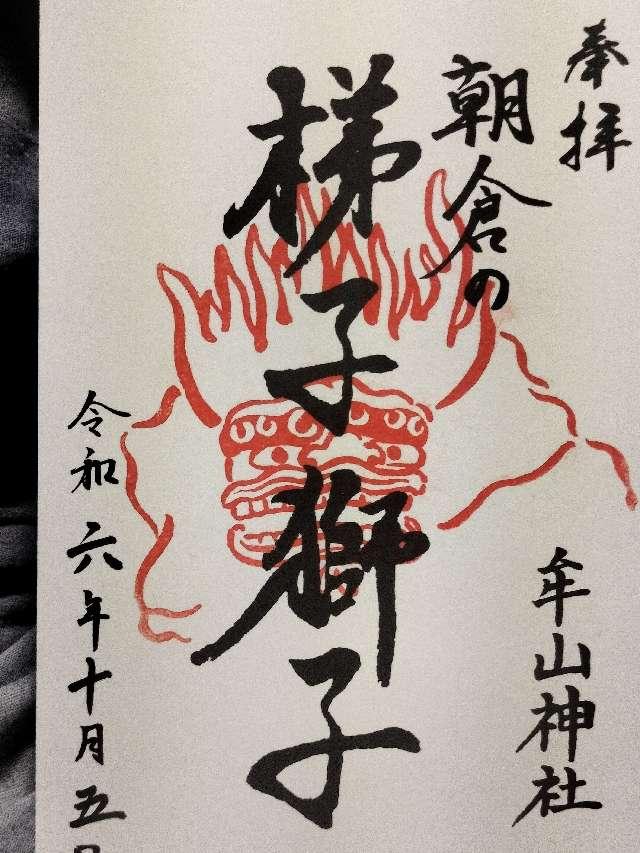 奉拝
朝倉の
梯子獅子
牟山神社
令和六年十月五日